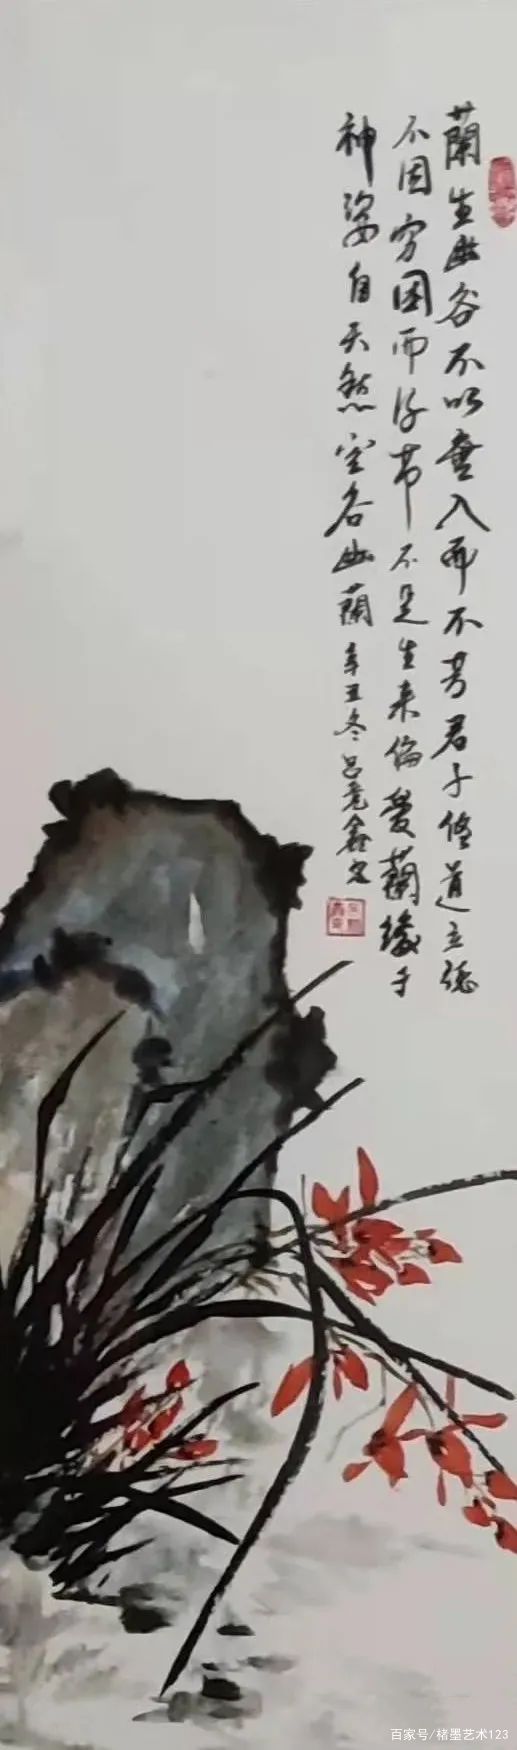 蘭生幽谷不以無人而不芳君子修道立德
不因穷困而改节不是生来偏爱蘭缘于
神姿自天然空谷幽蘭
辛丑冬吕
百家号/楮墨艺术123